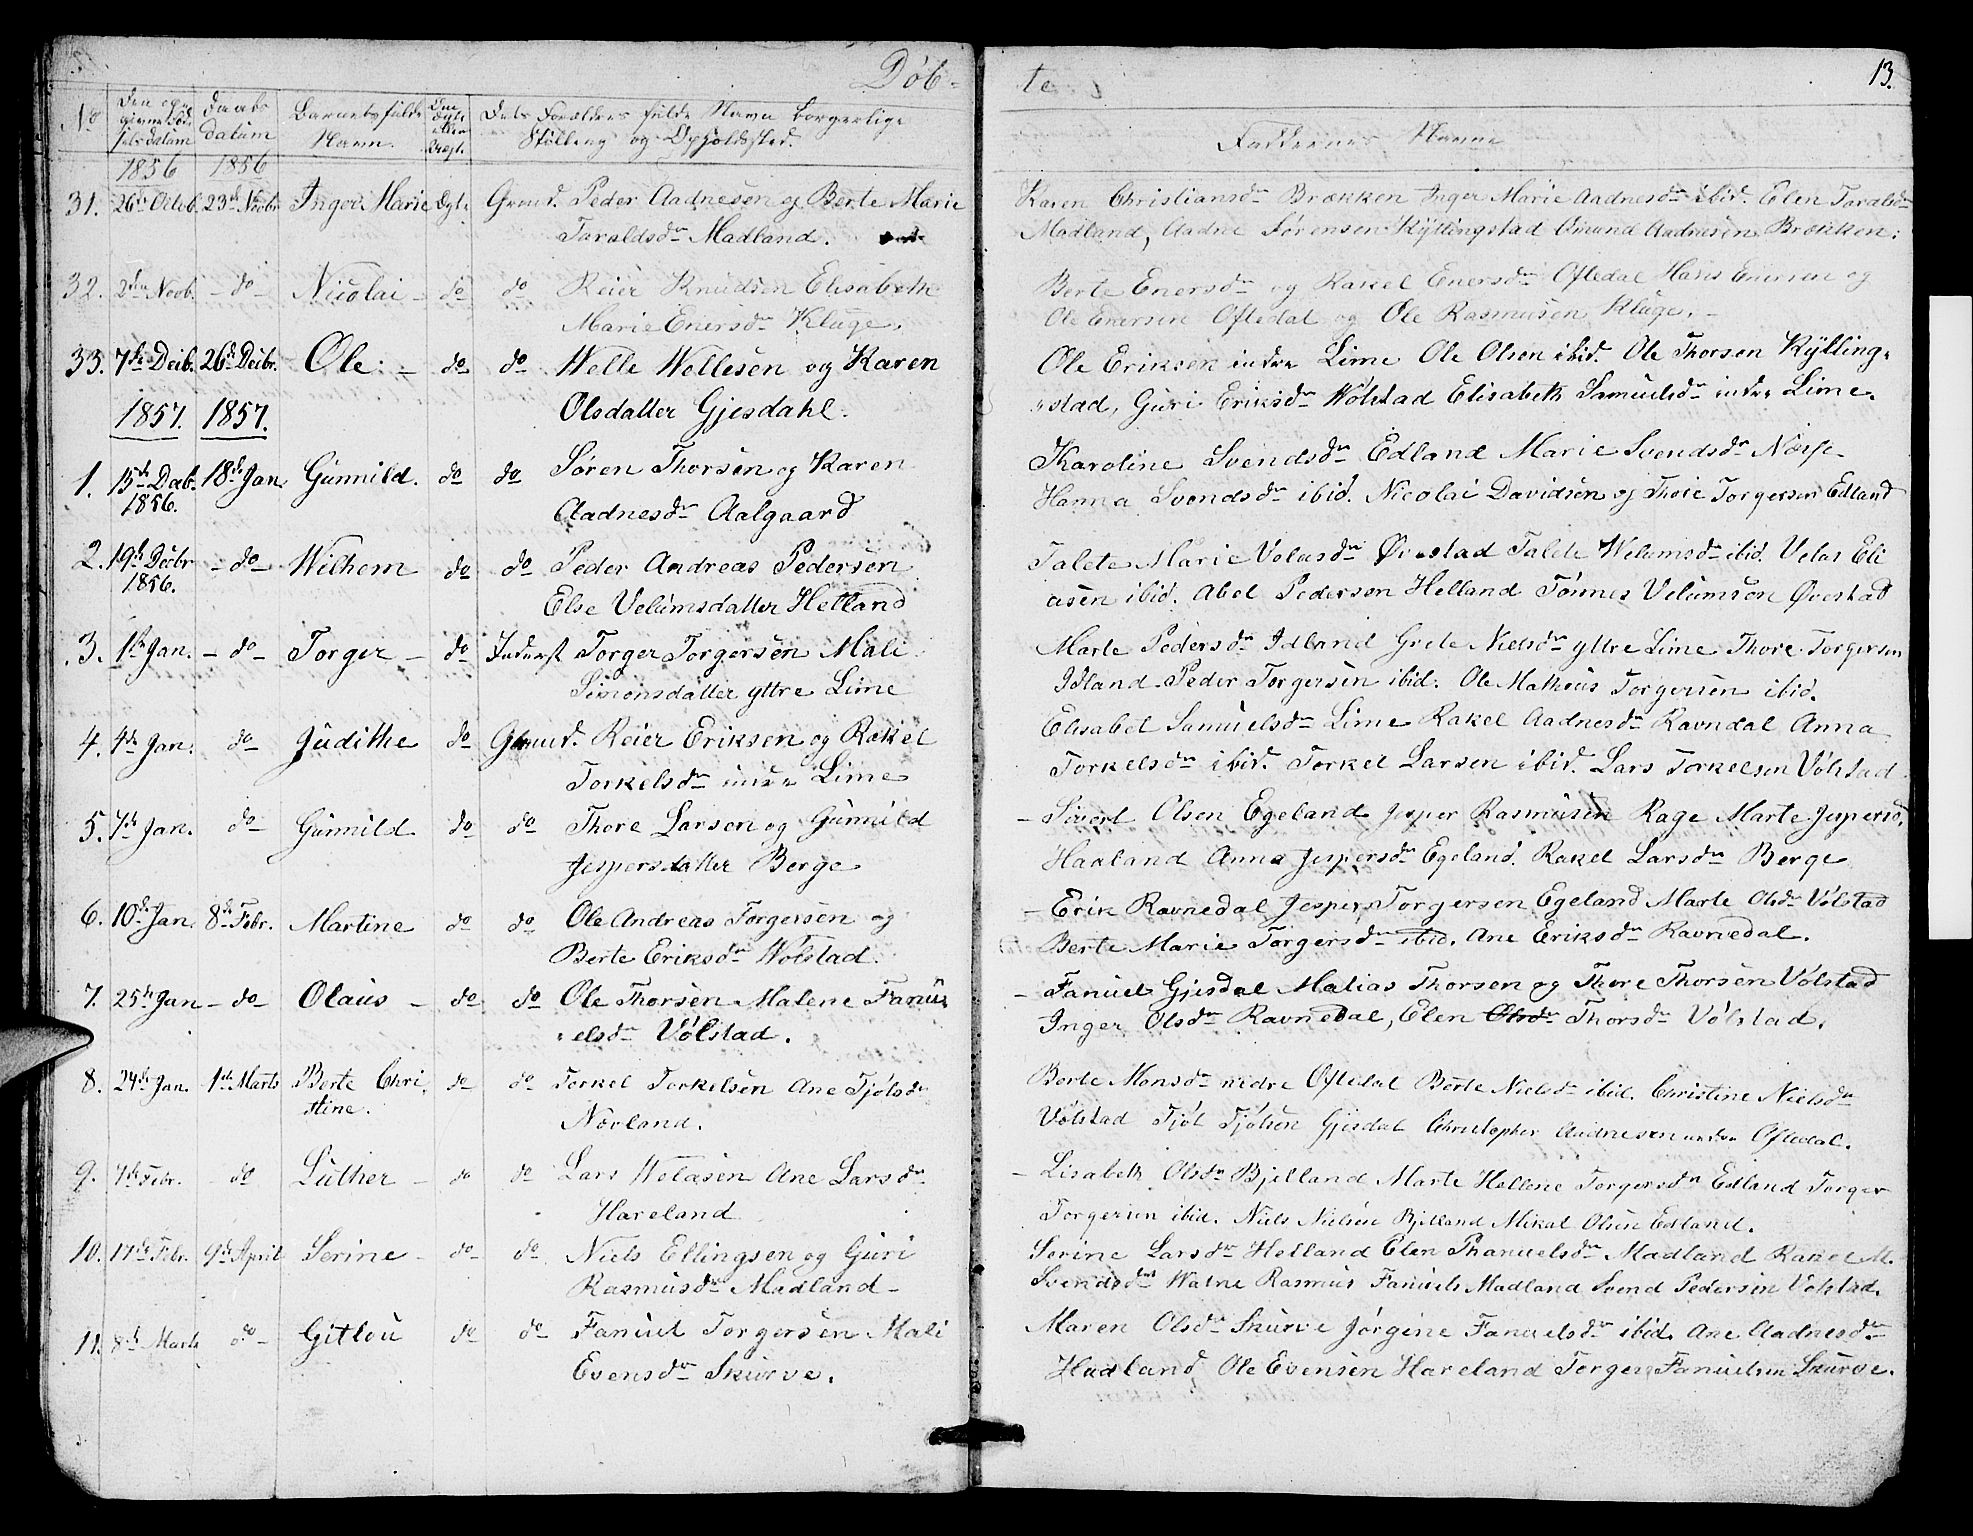 Døb-
te
13.
No
Den op-
givne Fød-
selsdatum
Daabs
datum
Barnets fulde
Navn.
Om
Ægte
eller
Uægt.
Dets Forældres fulde Navn borgerlige
Stilling og Opholdsted.
Faddernes Navne
1856 1856
31. 26de Octob. 23de Novbr Inger Marie Ægte Gaard. Peder Aadnesen og Berte Marie
Taraldsdr Madland.
Karen Christiansdr Brækken Inger Marie Aadnesdr ibid. Elen Taraldsdr
Madland, Aadne Sørensen Kyllingstad Omund Aadnesen Brækken.
32. 2den Novb. - do - Nicolai - do do Reier Knudsen Elisabeth
Marie Enersdr Kluge.
Berte Enersdr og Rakel Enersdr Oftedal Hans Enersen og
Ole Enersen Oftedal og Ole Rasmusen Kluge. -
33. 7de Decb. 26de Decbr. Ole: - do do Welle Wellesen og Karen
Olsdatter Gjesdahl.
Ole Eriksen indre Lime Ole Olsen ibid. Ole Thorsen Kylling-
stad, Guri Eriksdr Wølstad Elisabeth Samuelsdr indre Lime.
1857. 1857.
1. 15de Decb. 18de Jan. Gunnild. do do Søren Thorsen og Karen
1856.
Aadnesdr Aalgaard
Karoline Svendsdr Edland Marie Svendsdr Næse
Hanna Svendsdr ibid. Nicolai Davidsen og Thore Torgersen Edland
2. 19de Decbr - do - Wilhem do do Peder Andreas Pedersen
1856.
Else Velumsdatter Helland
Talete Marie Velasdr Øvestad Talete Welumsdr ibid. Velas Eli
asen ibid. Abel Pedersen Helland Tønnes Velumsen Øvestad
3. 1ste Jan. - do - Torger - do Inderst Torger Torgersen Mali
Simonsdatter yttre Lime
Marte Pedersdr Idland Grete Nielsdr yttre Lime Thore Torgersen
Idland Peder Torgersen ibid. Ole Matheus Torgersen ibid.
4. 4de Jan. do - Judithe do Gaard. Reier Eriksen og Rakel
Torkelsdr indre Lime
Elisabet Samuelsdr Lime Rakel Aadnesdr Ravndal Anna
Torkelsdr ibid. Torkel Larsen ibid. Lars Torkelsen Vølstad
5. 7de Jan. do - Gunnild do do Thore Larsen og Gunnild
Jespersdatter Berge
- Sivert Olsen Egeland Jesper Rasmusen Rage Marte Jespersd.
Haaland Anna Jespersdr Egeland. Rakel Larsdr Berge
6. 10de Jan. 8de Febr. Martine do do Ole Andreas Torgersen og
Berte Eriksdr Wølstad.
- Erik Ravnedal Jesper Torgersen Egeland Marte Olsdr Vølstad
Berte Marie Torgersdr ibid. Ane Eriksdr Ravnedal.
7. 25de Jan - do - Olaus - do do Ole Thorsen Malene Fanu-
elsdr Vølstad.
- Fanuel Gjesdal Malias Thorsen og Thore Thorsen Vølstad
Inger Olsdr Ravnedal, Elen Olsdr Thorsdr Vølstad.
8. 24de Jan. 1ste Marts Berte Chri- do do Torkel Torkelsen Ane Tjølsdr
stine.
Norland.
Berte Monsdr nedre Oftedal Berte Nielsdr ibid. Christine Nielsdr
Vølstad Tjøl Tjølsen Gjesdal Christopher Aadnesen nedre Oftedal.
9. 7de Febr. - do Luther - do do Lars Welasen Ane Larsdr
Hareland
- Lisabeth Olsdr Bjelland Marte Hellene Torgersdr Edland Torger
Torgersen ibid. Niels Nielsen Bjelland Mikal Olsen Edland.
10. 17de Febr. 9de April Serine - do - do Niels Ellingsen og Guri
Rasmusdr Madland -
Serine Larsdr Helland Elen Phanuelsdr Madland Rakel M.
Svendsdr Watne Rasmus Fanuels Madland Svend Pedersen Vølstad.
11. 8de Marts do - Gitlou do do Fanuel Torgersen Mali
Evensdr Skurve.
Maren Olsdr Skurve Jørgine Fanuelsdr ibid. Ane Aadnesdr
Hadland Ole Evensen Hareland Torger Fanuelsen Skurve.